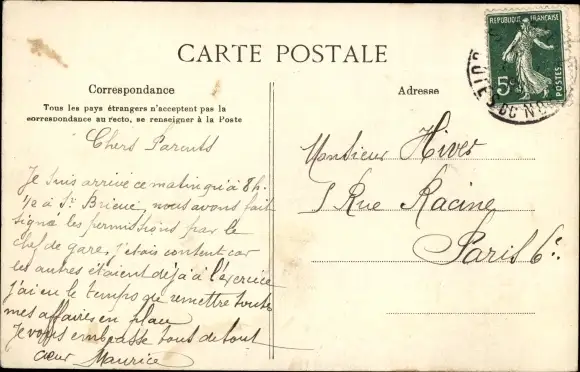 CARTE POSTALE
Correspondance
Tous les pays étrangers n'acceptent pas la
correspondance au recto, se renseigner à la Poste
Chers Parents
Je suis arrivé ce matin qu'à 8h.
1/2 à St Brieuc, nous avons fait
signé les permissions par le
chef de gare, j'étais content car
les autres étaient déjà à l'exercice
j'ai eu le temps de remettre toute
mes affaires en place
Je vous embrasse tous de tout
cœur Maurice
Adresse
Monsieur Hiver
1 Rue Racine
Paris 6e
REPUBLIQUE FRANÇAISE
5c
POSTES
CÔTES DU NORD